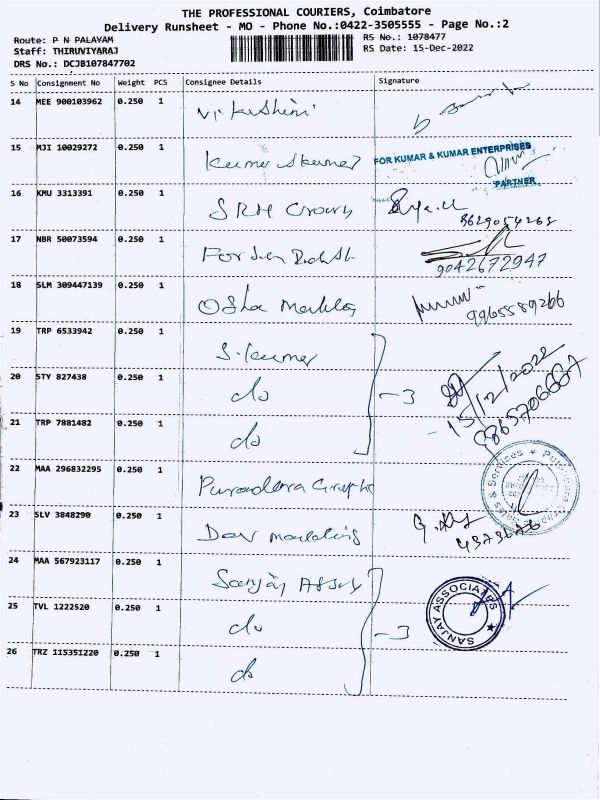 THE PROFESSIONAL COURIERS, Coimbatore
Delivery Runsheet - MO - Phone No.:0422-3505555 - Page No.:2
Route: P N PALAYAM
RS No.: 1078477
Staff: THIRUVIYARAJ
RS Date: 15-Dec-2022
DRS No.: DCJB107847702
S No Consignment No Weight PCS Consignee Details Signature
14 MEE 900103962 0.250 1
15 MJI 10029272 0.250 1 Kumar & kumar FOR KUMAR & KUMAR ENTERPRISES
PARTNER
16 KMU 3313391 0.250 1 SRM Crown
17 NBR 50073594 0.250 1
9042672947
18 SLM 309447139 0.250 1 Osha
9965589266
19 TRP 6533942 0.250 1 S. Kumar
20 STY 827438 0.250 1 do -3 15/12/2022
21 TRP 7881482 0.250 1 do
22 MAA 296832295 0.250 1
23 SLV 3848290 0.250 1
24 MAA 567923117 0.250 1 Sanjay SANJAY ASSOCIATES
25 TVL 1222520 0.250 1 do -3
26 TRZ 115351220 0.250 1 do